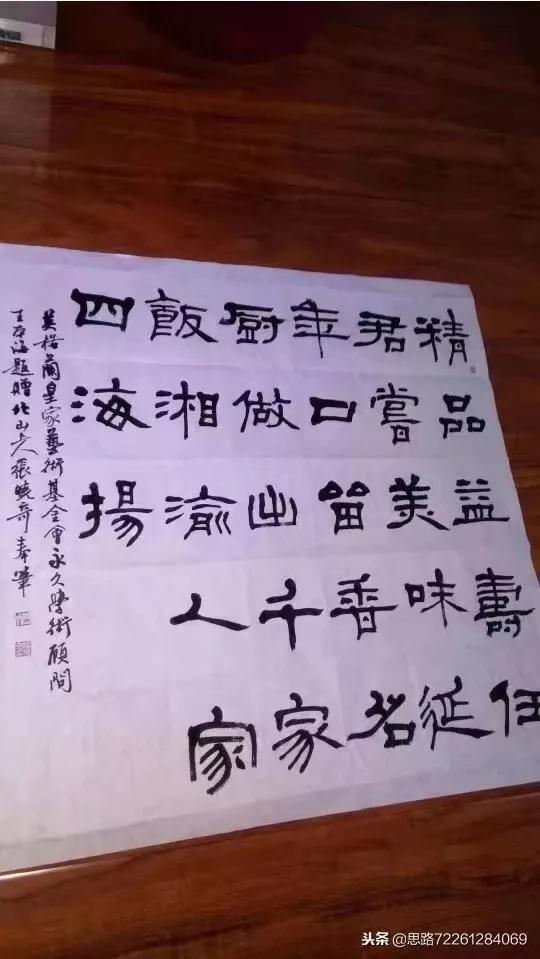 精品益壽任
君嘗美味延
年口留香名
厨做出千家
飯湘渝人家
四海揚
英格蘭皇家藝術基金會永久學術顧問
王海題贈北山人張曉奇奉筆
头条 @思路72261284069